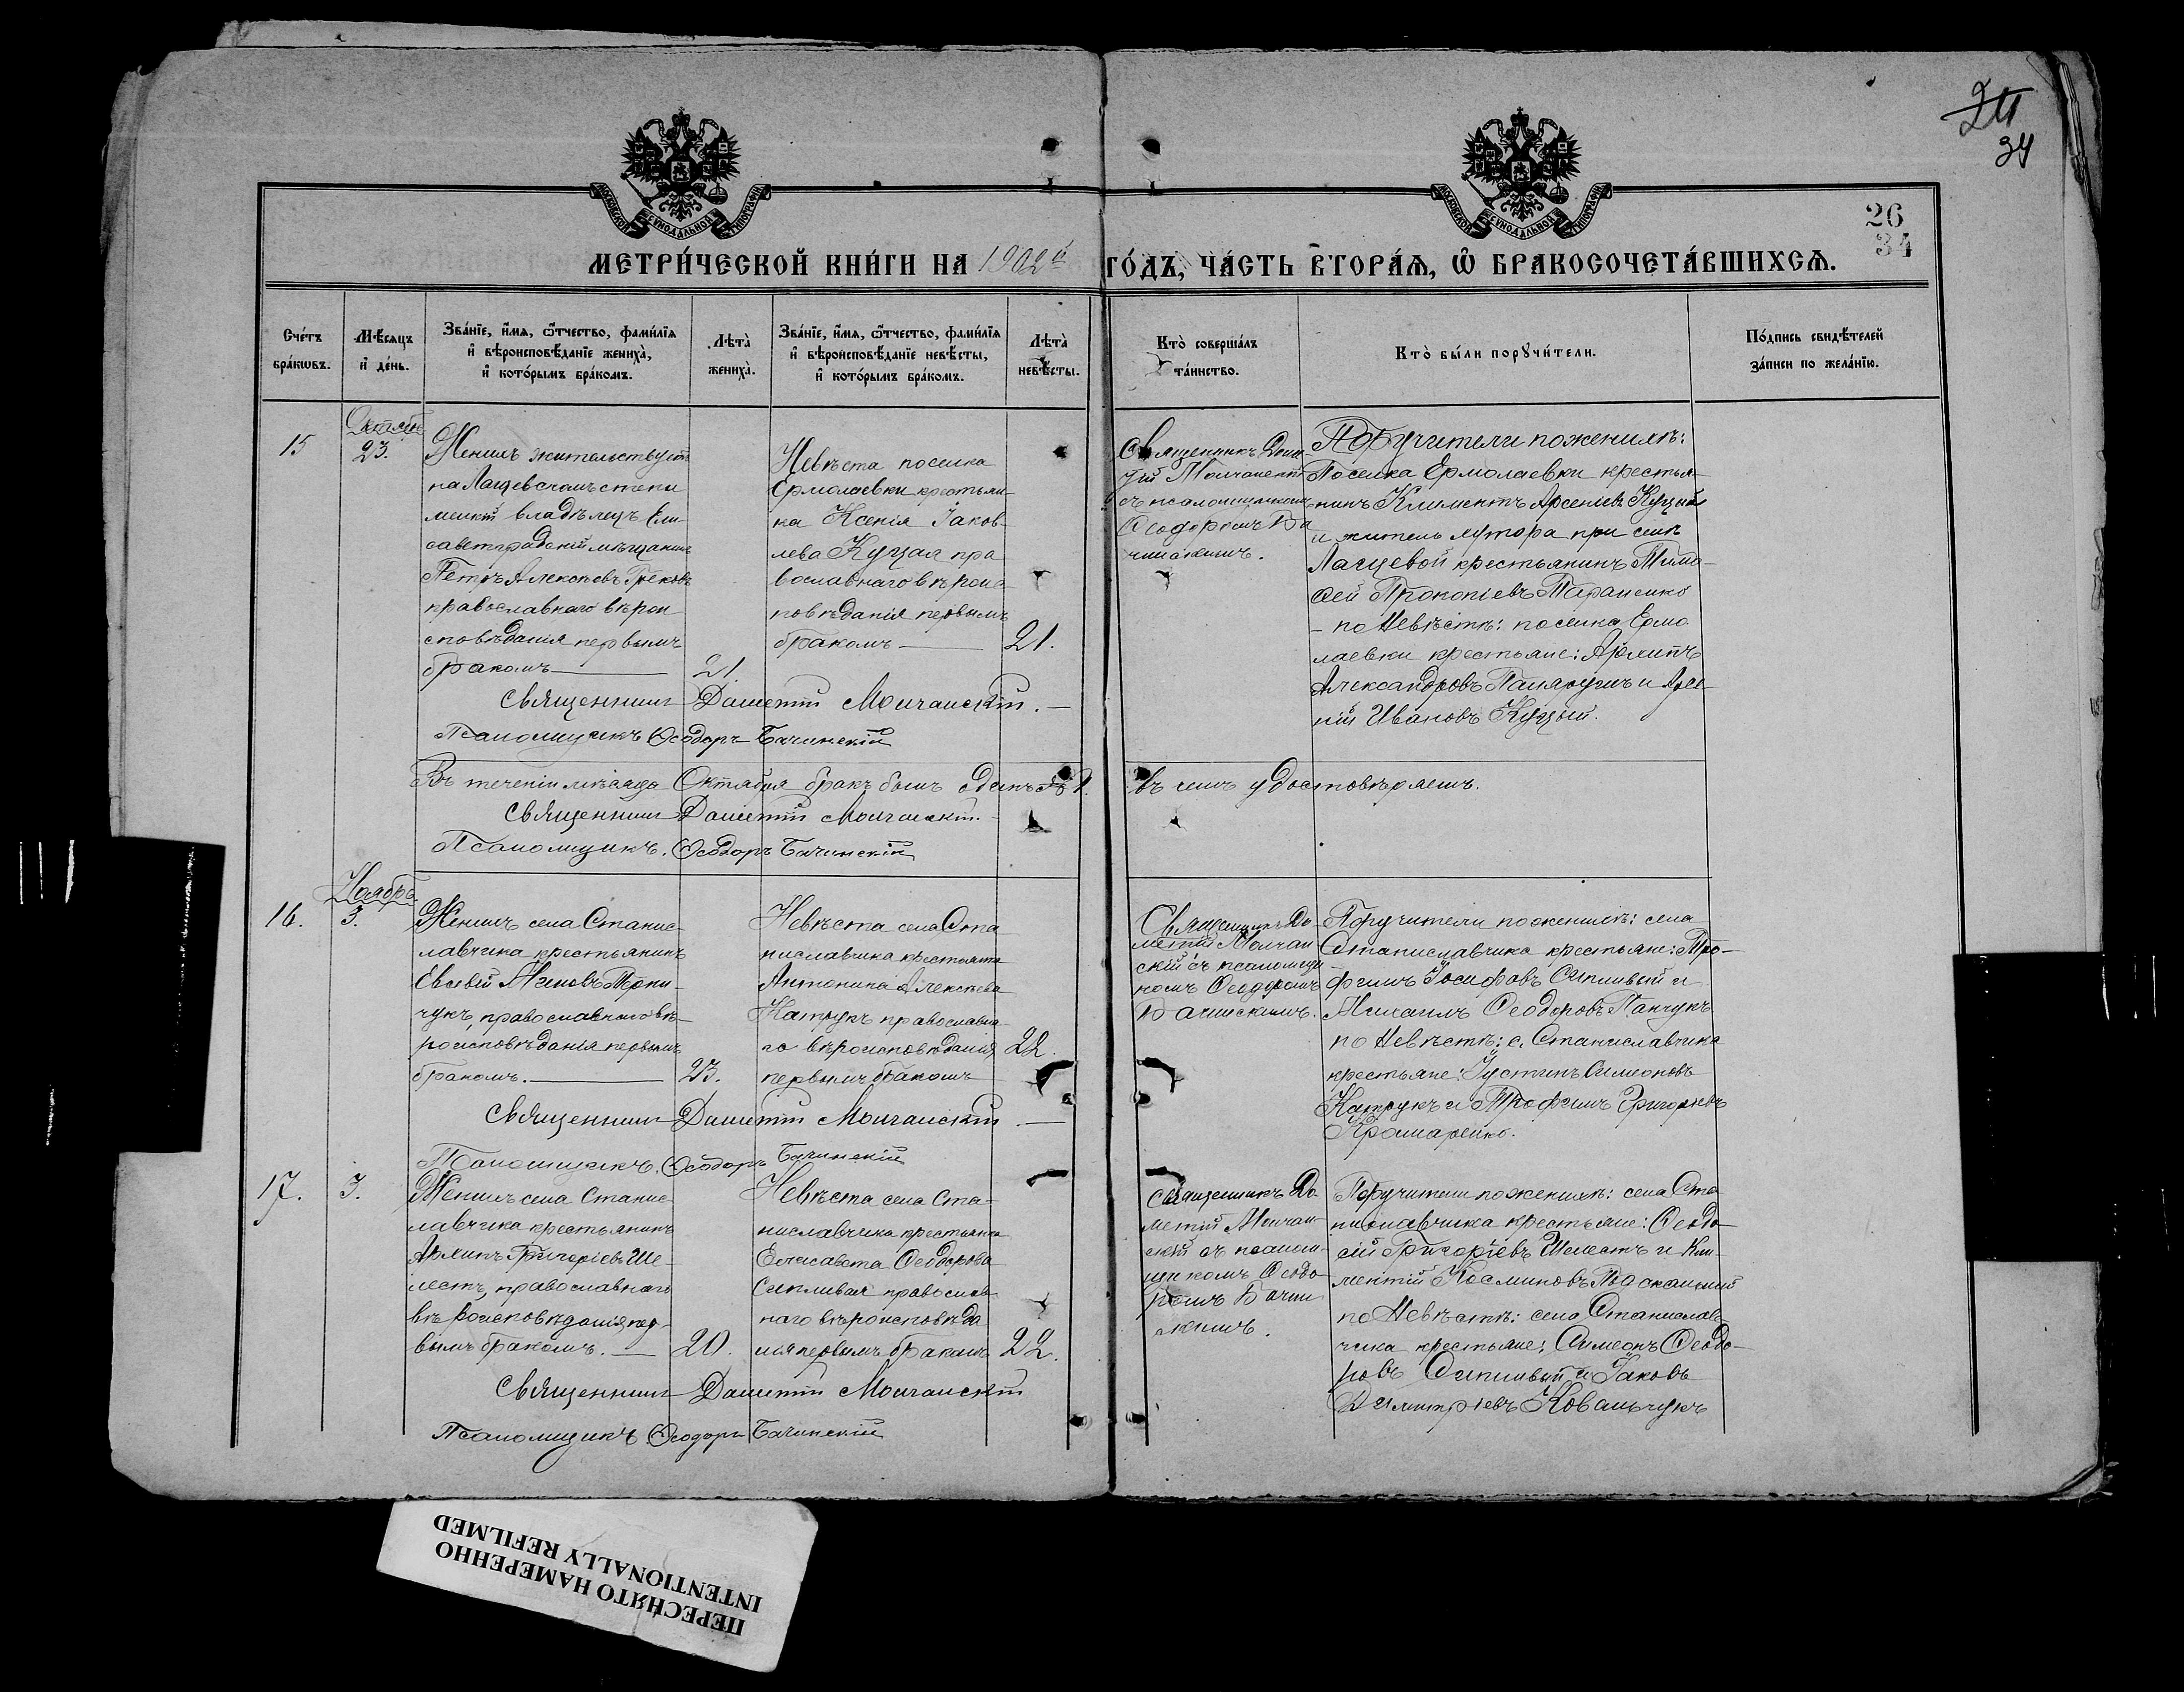 24
34
26
34
МОСКОВСКОЙ СѴНОДАЛЬНОЙ ТИПОГРАФІИ
МОСКОВСКОЙ СѴНОДАЛЬНОЙ ТИПОГРАФІИ
МЕТРИ́ЧЕСКОЙ КНИ́ГИ НА 1902й ГО́ДЪ, ЧА́СТЬ ВТОРА́Ѧ, Ѽ БРАКОСОЧЕТА́ВШИХСѦ.
Сче́тъ бра́кѡвъ.
Мѣ́сѧцъ и҆ де́нь.
Зва́нїе, и҆́мѧ, ѻ҆́тчество, фами́лїѧ
и҆ вѣроисповѣ́данїе жениха̀,
и҆ кото́рымъ бра́комъ.
Лѣта̀ жениха̀.
Зва́нїе, и҆́мѧ, ѻ҆́тчество, фами́лїѧ
и҆ вѣроисповѣ́данїе невѣ́сты,
и҆ кото́рымъ бра́комъ.
Лѣта̀ невѣ́сты.
Кто̀ соверша́лъ та́инство.
Кто̀ бы́ли порꙋчи́тели.
По́дпись свидѣ́телей
за́писи по жела́нїю.
15
Октябр
23.
Женихъ жительствует
на Лащевской степи
владѣлецъ Ели-
саветградскій мѣщанинъ
Петръ Алексѣевъ Грековъ
православнаго вѣрои
сповѣданія первымъ
бракомъ
21.
Невѣста поселка
Ермолаевки крестьян-
ка Ксенія Іаков-
лева Куцая пра
вославнаго вѣроис-
повѣданія первымъ
бракомъ
21.
Священникъ Дом
съ псаломщикомъ
Ѳеодоромъ Ба
чинскимъ.
Поручители по женихѣ:
Поселка Ермолаевки крестья-
нинъ Климентъ Арсеніевъ Куцый
и житель хутора при селѣ
Лащевой крестьянинъ Тимо-
ѳей Прокопіевъ Тараненко
- по Невѣстѣ: поселка Ермо
лаевки крестьяне: Архипъ
Александровъ и Арсе-
ній Ивановъ Куцый.
Священникъ Дометій Молчанскій.
Псаломщикъ Ѳеодоръ Бачинскій
Въ теченіи мѣсяца Октября бракъ былъ одинъ № 1. въ чемъ удостовѣряемъ.
Священникъ Дометій Молчанскій.
Псаломщикъ. Ѳеодоръ Бачинскій
Ноябрь
16.
3.
Женихъ села Станис-
лавчика крестьянинъ
Евсевій Терни-
чукъ, православнаго вѣ-
роисповѣданія первымъ
бракомъ.
23.
Невѣста села Ста
ниславчика крестьянка
Антонина Алексѣева
Катрукъ православна-
го вѣроисповѣданія
первымъ бракомъ
22.
Священникъ До-
метій Молчан
скій съ псаломщи-
комъ Ѳеодоромъ
Бачинскимъ.
Поручители по женихѣ: села
Станиславчика крестьяне: Тро-
фимъ Іосифовъ Сипливый и
Михаилъ Ѳеодоровъ Панчукъ
по Невѣстѣ: с. Станиславчика
крестьяне: Іустинъ Симеоновъ
Катрукъ и Трофимъ Григорьевъ
Крамаренко.
Священникъ Дометій Молчанскій.
Псаломщикъ. Ѳеодоръ Бачинскій
17.
3.
Женихъ села Станис-
лавчика крестьянинъ
Архипъ Григоріевъ Ше-
лестъ, православнаго
вѣроисповѣданія, пер-
вымъ бракомъ.
20.
Невѣста села Ста-
ниславчика крестьянка
Елисавета Ѳеодорова
Сипливая православ-
наго вѣроисповѣда
нія первымъ бракомъ
22.
Священникъ До
метій Молчан-
скій съ псалом-
щикомъ Ѳеодо-
ромъ Бачин
скимъ.
Поручители по женихѣ: села Ста
ниславчика крестьяне: Ѳеодо-
сій Григоріевъ Шелестъ и Кли-
ментій Косминовъ
по Невѣстѣ: села Станислав-
чика крестьяне; Симеонъ Ѳеодо-
ровъ Сипливый и Іаковъ
Димитріевъ Ковальчукъ
Священникъ Дометій Молчанскій
Псаломщикъ Ѳеодоръ Бачинскій
ПЕРЕСНЯТО НАМЕРЕННО
INTENTIONALLY REFILMED